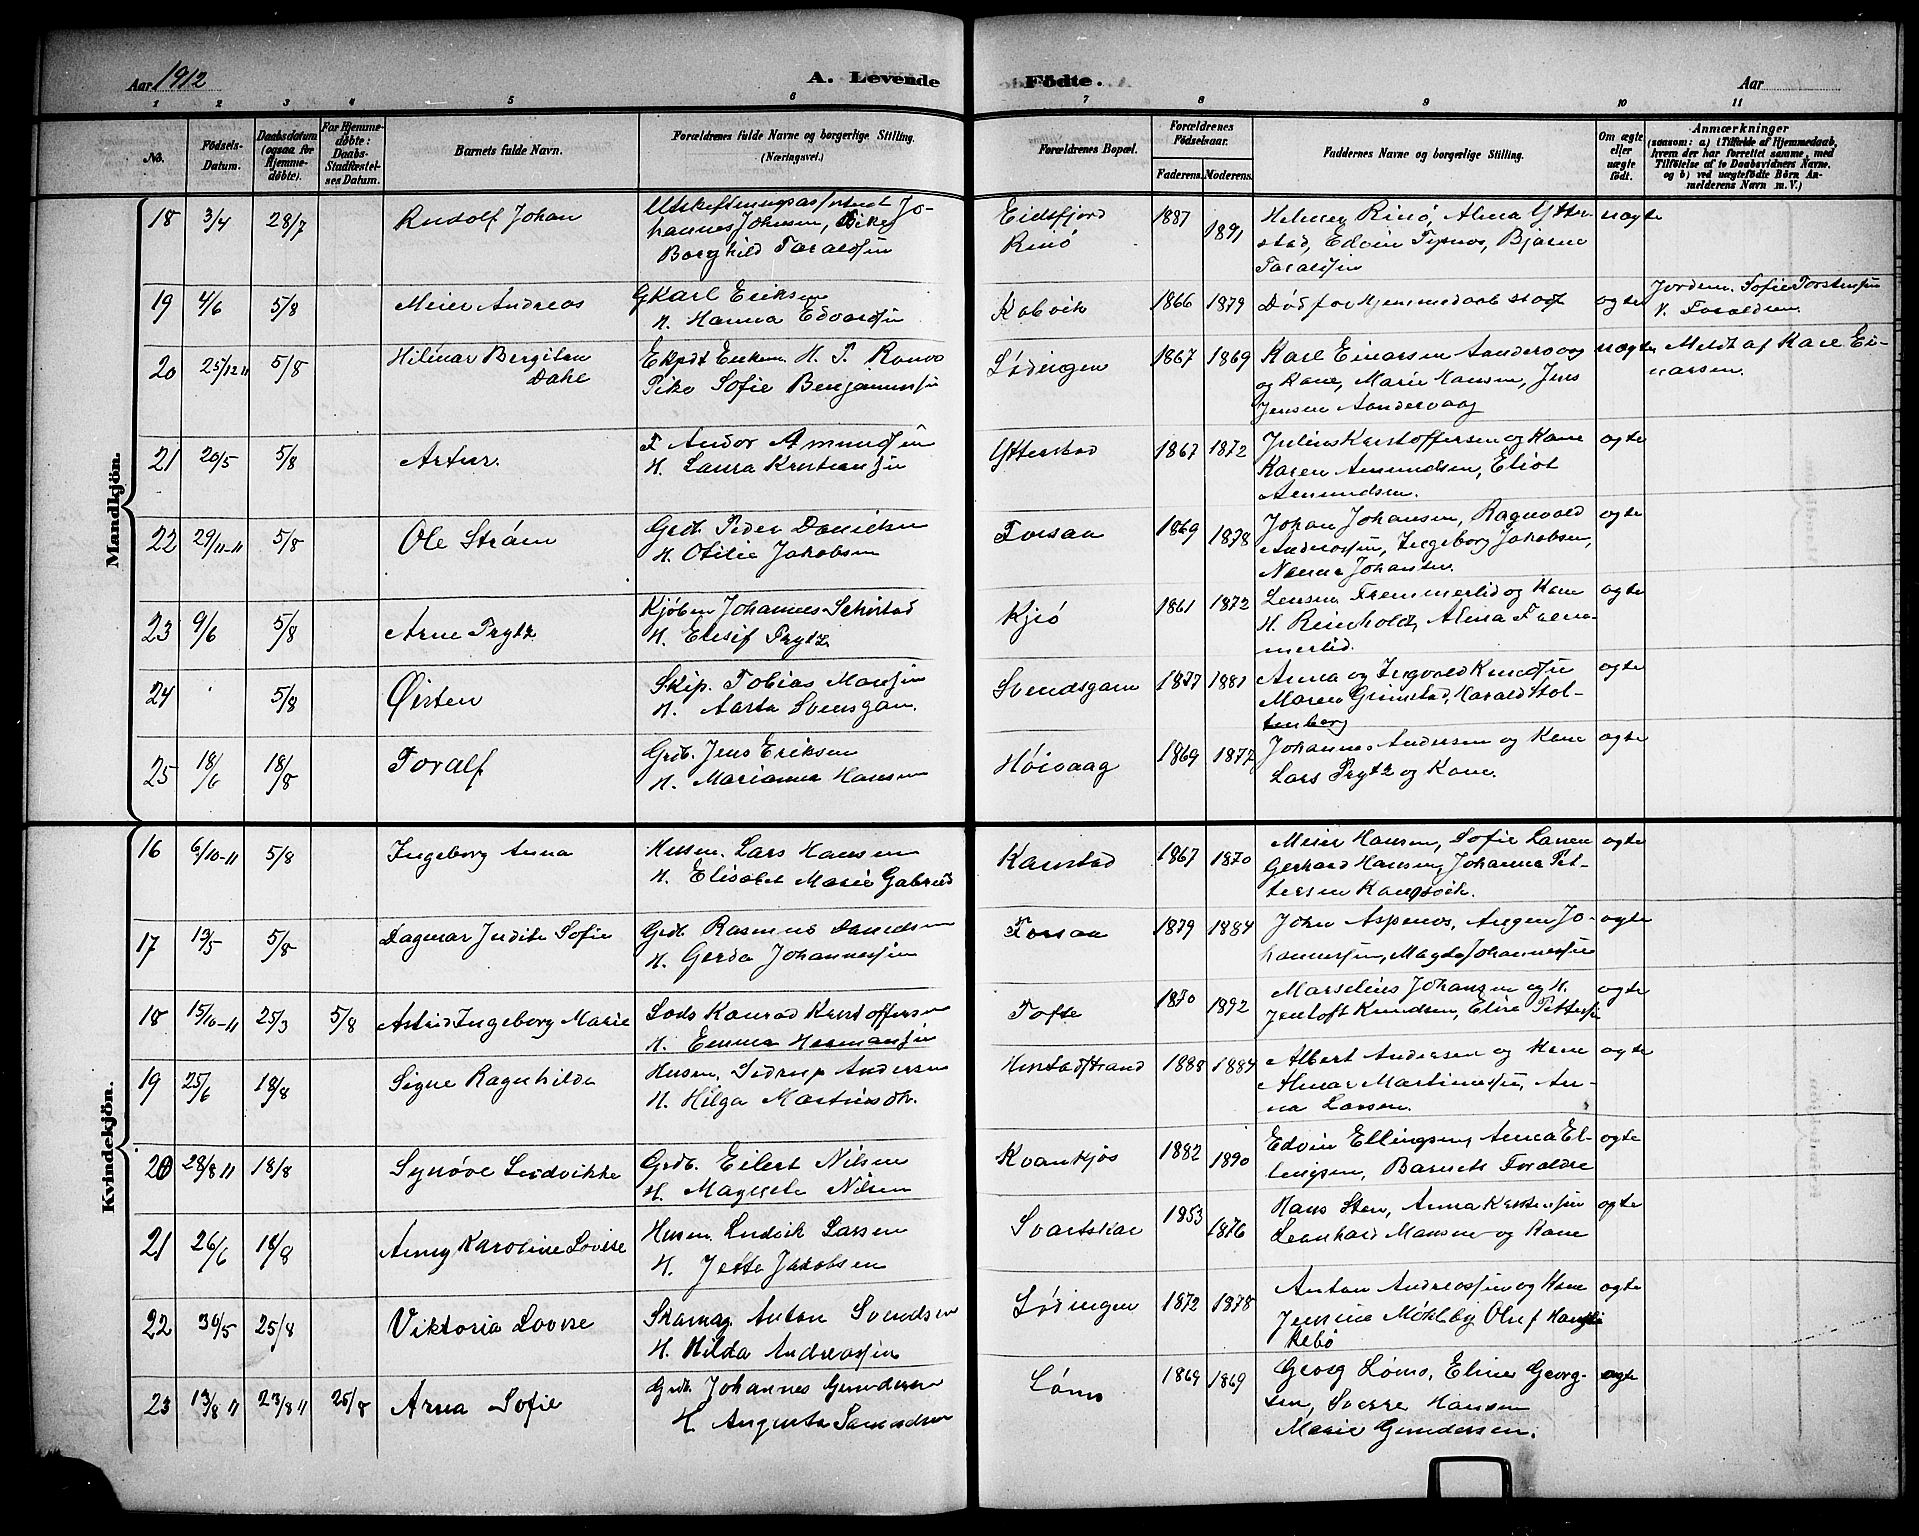 Aar 1912
A. Levende
Födte.
Aar
1 2 3 4 5 6 7 8 9 10 11
No.
Födsels-Datum.
Daabsdatum (ogsaa for Hjemme-døbte).
For Hjemme-døbte: Daabs-Stadfæstel-ses Datum.
Barnets fulde Navn.
Forældrenes fulde Navne og borgerlige Stilling.
(Næringsvei.)
Forældrenes Bopæl.
Forældrenes Födselsaar.
Faderens. Moderens.
Faddernes Navne og borgerlige Stilling.
Om ægte eller uægte født.
Anmærkninger
(saasom: a) i Tilfælde af Hjemmedaab,
hvem der har forrettet samme, med
Tilföielse af to Daabsvidners Navne.
og b) ved uægtefödte Börn An-
melderens Navn m. V.)
Mandkjön.
18 3/4 28/7 Rudolf Johan
hannes Johnsen, Pike
Borghild Taraldsen
Eidsfjord
Rinö
1887 1891
Hilmer Rinö, Alma Ytter-
stad, Edvin Bjarne
Taraldsen
uægte
19 4/6 5/8 Meier Andreas
G Karl Eriksen
H. Hanna Edvardsen
Kobvik
1866 1879
Død før Hjemmedaab stadf
ægte
Jordem. Sofie Torstensen
V. Foraldren
20 25/12 11 5/8 Hilmar Bergiton
Dahl
Ekpdt H. P.
Pike Sofie Benjaminsen
Lødingen
1867 1869
Karl Einarsen Sandervaag
og Kone, Marie Hansen, Jens
Jensen Sandervaag
uægte
Meldt af Karl Ei-
narsen.
21 20/5 5/8 Artur.
F Andor Amundsen
H. Laura Kristiansen
Ytterstad
1867 1872
Julius Kristoffersen og Kone
Karen Amundsen, Eliot
Amundsen.
ægte
22 29/11-11 5/8 Ole Strøm
Grdb. Peder Danielsen
H. Otilie Jakobsen
Forsaa
1869 1878
Johan Johansen, Ragnvald
Andreassen, Ingeborg Jakobsen,
Nanna Johansen.
ægte
23 9/6 5/8 Arne Prytz
Kjøbm Johannes Schistad
H. Elisif Prytz
Kjeö
1861 1872
Lensm Fremmerlid og Kone
H. Reinholdt, Alma Frem-
merlid.
ægte
24 5/8 Øisten
Skip. Tobias
H. Aasta Svensgam.
Svendsgam
1877 1881
Anna og Ingvald Knudsen
Maren Grimstad, Harald Stol-
tenberg
ægte
25 18/6 18/8 Toralf
Grdb. Jens Eriksen
H. Marianna Hansen
Höivaag
1869 1877
Johannes Andersen og Kone
Lars Prytz og Kone.
ægte
Kvindekjön.
16 6/10-11 5/8 Ingeborg Anna
Husm. Lars Hansen
H. Elisabet Marie Gabriels
Kanstad
1867 1870
Meier Hansen, Sofie Larsen
Gerhard Hansen, Johanna Pet-
tersen
ægte
17 19/5 5/8 Dagmar Judite Sofie
Grdb. Rasmus Danielsen
H. Gerda Johannessen
Forsaa
1879 1884
John Aspenes, Jo-
hannessen, Magda Johannessen
ægte
18 15/10-11 25/3 5/8 Astrid Ingeborg Marie
Lods Konrad Kristoffersen
H. Emma Hermansen
Tofte
1870 1892
Marselius Johansen og H.
Jentoft Knudsen, Eline Pettersen
ægte
19 25/6 18/8 Signe Ragnhilda
Husm. Andersen
H. Hilga
1888 1884
Albert Andersen og Kone
Almar Martinussen, An-
na Larsen.
ægte
20 28/8 11 18/8 Synøve Ludvikke
Grdb. Eilert Nilsen
H. Magreta Nilsen
Kvankjos
1882 1890
Edvin Ellingsen, Anna El-
lingsen, Barnets Foraldre
ægte
21 26/6 18/8 Anny Karoline Lovise
Husm. Ludvik Larsen
H. Jette Jakobsen
Svartskar
1853 1876
Hans Sten, Anna Kristensen
Leonhard Hansen og Kone
ægte
22 30/5 25/8 Viktoria Lovise
Skomag Anton Svendsen
H. Hilda Andreassen
Lødingen
1872 1878
Anton Andreassen og Kone
Jensine Møhlby, Oluf
Rebø
ægte
23 13/8 11 23/8 11 25/8 Arna Sofie
Grdb. Johannes Gundersen
H. Augusta
Lømo
1869 1869
Georg Lømo, Eline Georg-
sen, Sverre Hansen
Marie Gundersen.
ægte